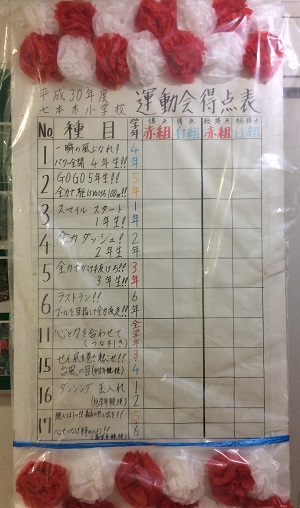 平成30年度
七本木小学校
運動会得点表
No. 種目 学年 得点 赤組 得点 白組 総得点 赤組 総得点 白組
1 一瞬の風になれ!
パワー全開 4年生!! 4年
2 GOGO5年生!!
全力で駆けぬけろ100m!! 5年
3 スマイル スタート
1年生! 1年
4 全力ダッシュ!
2年生 2年
5 全力でかけ抜けろ!!
3年生!! 3年
6 ラストラン!!
ゴールを目指して全力疾走!! 6年
11 心と力を合わせて
(つな引き) 全学年
15 せん風を巻き起こせ!!
台風の目 3・4
16 ダンシング 玉入れ
1・2
17
5・6